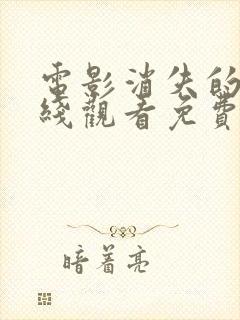 電影消失的
綫觀看免費
暗着亮